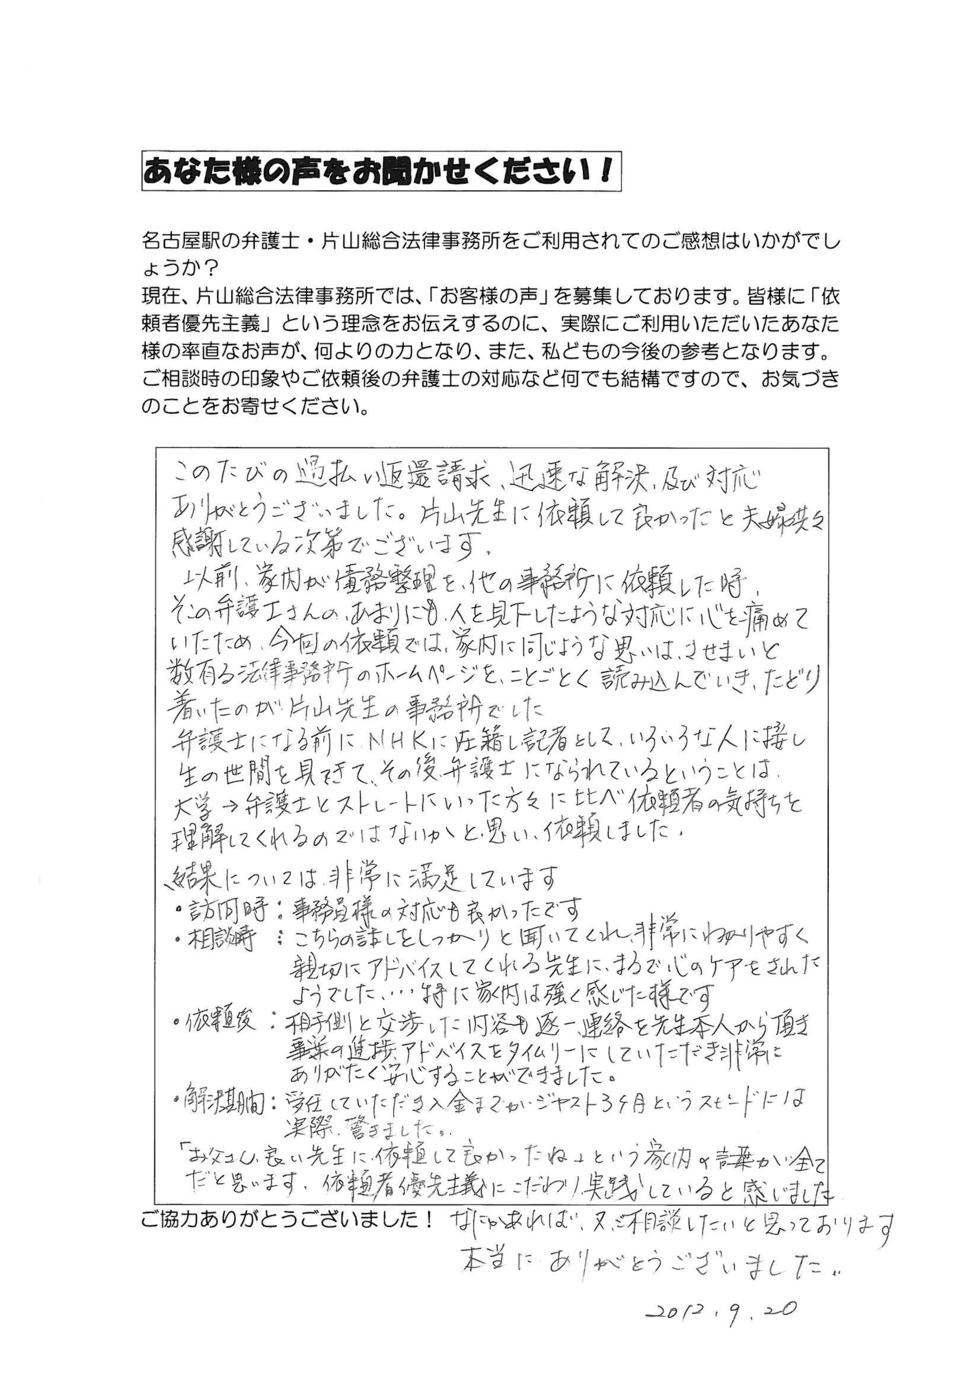 あなた様の声をお聞かせください！
名古屋駅の弁護士・片山総合法律事務所をご利用されてのご感想はいかがでし
ょうか？
現在、片山総合法律事務所では、「お客様の声」を募集しております。皆様に「依
頼者優先主義」という理念をお伝えするのに、実際にご利用いただいたあなた
様の率直なお声が、何よりの力となり、また、私どもの今後の参考となります。
ご相談時の印象やご依頼後の弁護士の対応など何でも結構ですので、お気づき
のことをお寄せください。
このたびの過払い返還請求、迅速な解決、及び対応
ありがとうございました。片山先生に依頼して良かったと夫婦共々
感謝している次第でございます。
以前、家内が債務整理を、他の事務所に依頼した時、
そこの弁護士さんの、あまりにも、人を見下したような対応に心を痛めて
いたため、今回の依頼では、家内に同じような思いは、させまいと
数有る法律事務所のホームページを、ことごとく読み込んでいき、たどり
着いたのが片山先生の事務所でした
弁護士になる前に、NHKに在籍し記者として、いろいろな人に接し
生の世間を見てきて、その後、弁護士になられているということは、
大学→弁護士とストレートにいった方々に比べ依頼者の気持ちを
理解してくれるのではないかと思い、依頼しました。
結果については、非常に満足しています
・訪問時：事務員様の対応も良かったです
・相談時：こちらの話しをしっかりと聞いてくれ、非常にわかりやすく
親切にアドバイスしてくれる先生に、まるで心のケアをされた
ようでした、…特に家内は強く感じた様です
・依頼後：相手側と交渉した内容も逐一連絡を先生本人から頂き
事案の進捗、アドバイスをタイムリーにしていただき非常に
ありがたく安心することができました。
・解決期間：受任していただき入金までが、ジャスト3ヶ月というスピードには
実際、驚きました。
「お父さん、良い先生に、依頼して良かったね」という家内の言葉が、全て
だと思います。依頼者優先主義にこだわり実践していると感じました
ご協力ありがとうございました！ なにかあれば、又、ご相談したいと思っております
本当にありがとうございました。
2012.9.20